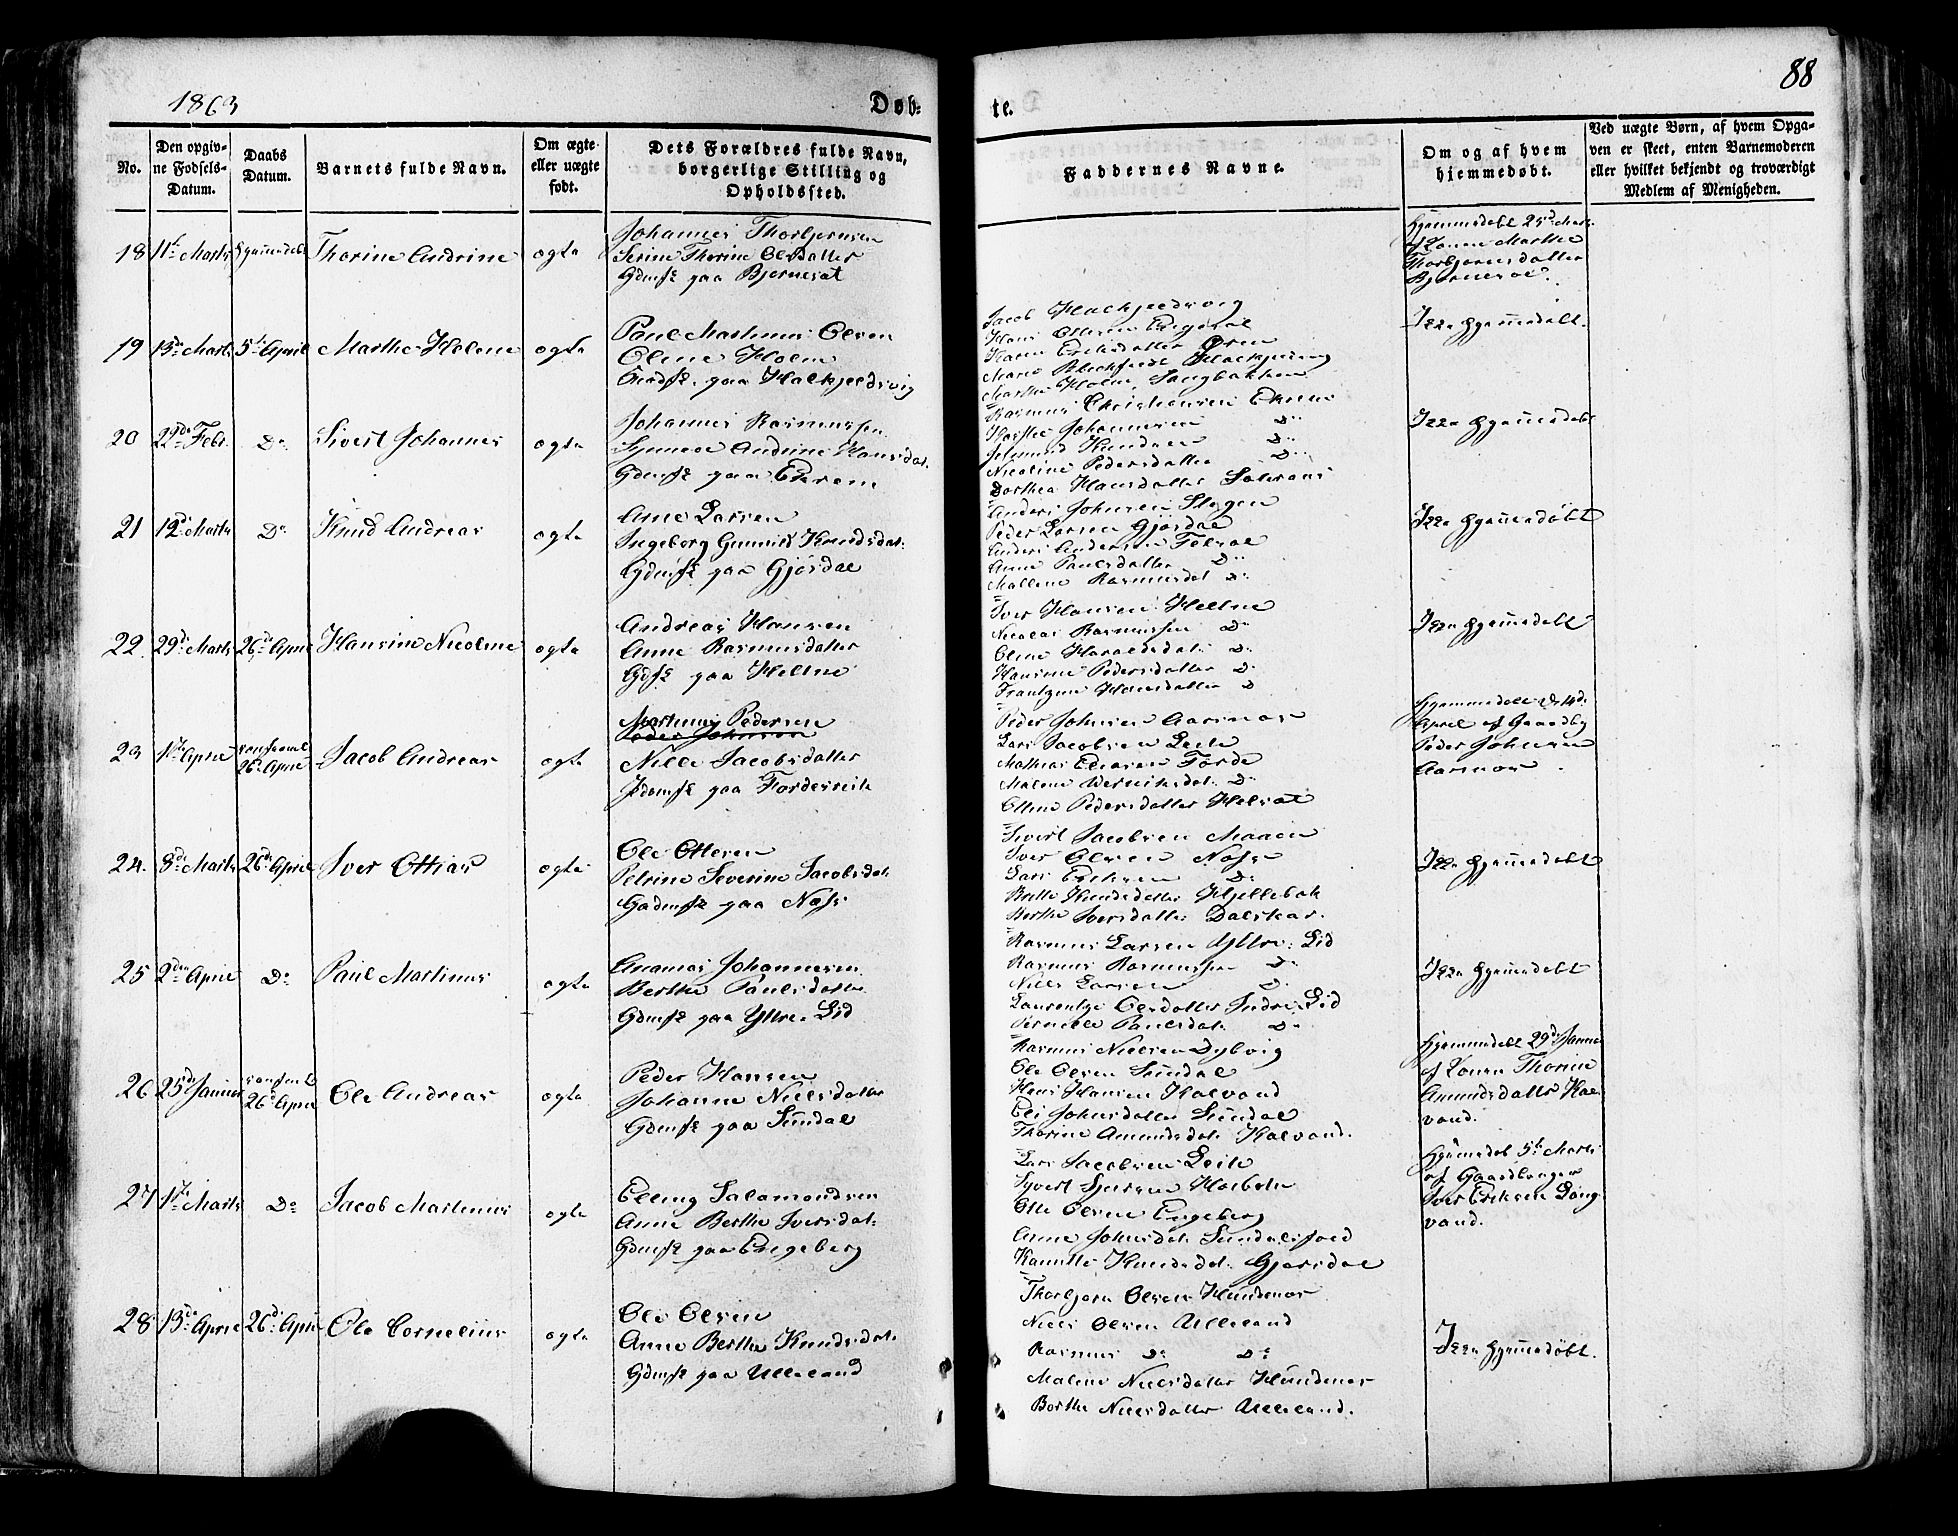 1863
Døb-
te.
88
No.
Den opgiv-
ne Fødsels-
Datum.
Daabs
Datum.
Barnets fulde Navn.
Om ægte
eller uægte
født.
Dets Forældres fulde Navn,
borgerlige Stilling og
Opholdssted.
Faddernes Navne.
Om og af hvem
hjemmedøbt.
Ved uægte Børn, af hvem Opga-
ven er skeet, enten Barnemoderen
eller hvilket bekjendt og troværdigt
Medlem af Menigheden.
18 11te Marts Hjemmedøbt Thorine Andrine ægte
Johannes Thorbjørnsen
Serine Thorine Olsdatter
Gdmfk paa Bjørneset
Hjemmedøbt 25de Marts
af Konen Marthe
Thorbjørnsdatter
Bjørneset.
19 13de Marts 5te April Marthe Helene ægte
Paul Martinus Olsen
Oline Holm
paa Hakjedsvig
Jacob Hakjedsvig
Hans Ottesen Engdal
Karen Eriksdatter Øren
Marthe Holm, Sangbakken
Ikke hjemmedøbt.
20 22de Febr. Do Sivert Johannes ægte
Johannes Rasmussen
Synnøe Andrine Hansdat.
Gdmfk paa Ekrem
Rasmus Christiansen Ekrem
Johannesen Do
Knudsen Do
Nicoline Pedersdatter Do
Dorthea Hansdatter
Ikke hjemmedøbt
21 12te Marts Do Knud Andreas ægte
Arne Larsen
Ingeborg Gunnild Knudsdat.
Gdmfk paa Gjørdal
Anders Johnsen Stegen
Peder Larsen Gjørdal
Anders Andersen
Anne Paulsdatter Do
Mallene Rasmusdat Do
Ikke hjemmedøbt
22. 29de Marts 26de April Hansine Nicoline ægte
Andreas Hansen
Anne Rasmusdatter
Gdfk paa Heltne
Iver Hansen Heltne
Nicolai Rasmussen Do
Oline Haraldsdat. Do
Hansine Pedersdatter Do
Frantzine Hansdatter D
Ikke hjemmedøbt
23 1te April 26de April Jacob Andreas ægte
Martinus Pedersen
Peder Johnsen
Nille Jacobsdatter
paa Førdesreit
Peder Johnsen Aarsnos
Lars Jacobsen Leite
Mathias Eliasen Førde
Malene Do
Oline Pedersdatter Helset
Hjemmedøbt D. 14de
April af Gaardby
Peder Johnsen
Aarsnos.
24. 8de Marts 26de April Iver Ottias ægte
Ole Ottesen
Petrine Severine Jacobsdat.
Gadmfk paa Næss
Sivert Jacobsen
Iver Olsen Næss
Lars Eriksen Do
Brithe Knudsdatter Hjellebak
Berthe Iversdatter Dalskar.
Ikke hjemmedøbt
25 2den April Do Paul Martinus ægte
Johannesen
Berthe Paulsdatter
Gdmfk paa Yttre-Lid
Rasmus Larsen Yttre-Lid
Rasmus Rasmussen Do
Niels Larsen D.
Laurentze Olsdatter Indre-Lid
Pernille Paulsdat. Do
Ikke hjemmedøbt
26 25de Januar 26de April Ole Andreas ægte
Peder Hansen
Johanne Nielsdatter
Gdmfk paa Sundal
Rasmus Nielsen Dybvig
Ole Olsen Sundal
Hans Hansen Kalvand
Eli Johnsdatter Sundal
Thorine Amundsdat. Kalvand.
Hjemmedøbt 29de Januar
af Konen Thorine
Amundsdatter Kal-
vand.
27 1te Marts Do Jacob Martinus ægte
Elling Salamondsen
Anne Berthe Iversdat.
Gdmfk paa Engeberg
Lars Jacobsen Leite
Otte Olsen Engeberg
Anne Johnsdat. Sundalsfoed
Knudsdat. Gjørsdal
Hjemmedøb 5te Marts
af Gaardbrugen
Iver Eriksen Lang-
vand.
28 13de April 26de April Ole Cornelius ægte
Ole Olsen
Anne Berthe Knudsdat.
Gdmfk paa Ulleland
Thorbjørn Olsen Hundsnes
Niels Olsen Ulleland
Rasmus Do Do
Malene Nielsdatter Hundsnes
Berthe Nielsdatter Ulleland.
Ikke hjemmedøbt.